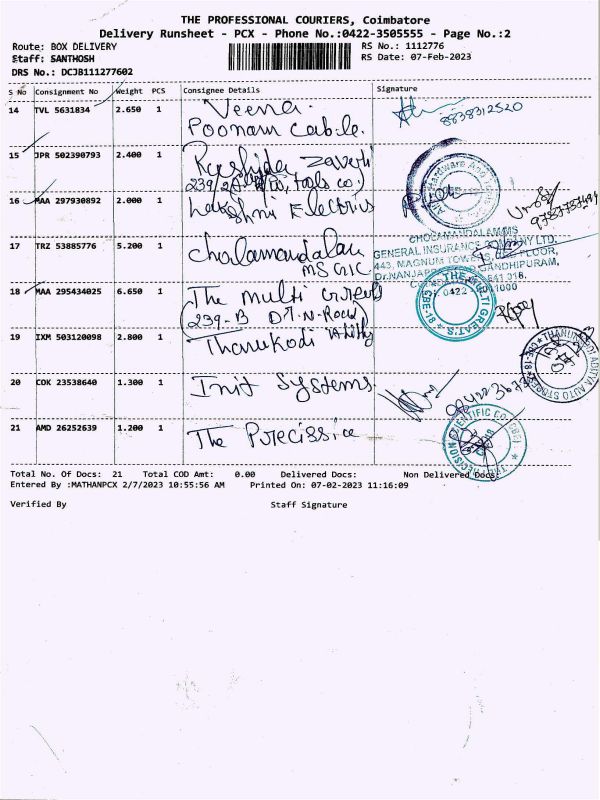 THE PROFESSIONAL COURIERS, Coimbatore
Delivery Runsheet - PCX - Phone No.:0422-3505555 - Page No.:2
Route: BOX DELIVERY
RS No.: 1112776
Staff: SANTHOSH
RS Date: 07-Feb-2023
DRS No.: DCJB111277602
S No Consignment No Weight PCS Consignee Details Signature
14 TVL 5631834 2.650 1 Veena.
Poonam Cable.
8838312520
15 JPR 502390793 2.400 1 Rashida Zaveri
239/
16 MAA 297930892 2.000 1 Lakshmi Electrics
17 TRZ 53885776 5.200 1 Cholamandalam
MS GIC
CHOLAMANDALAM MS
GENERAL INSURANCE COMPANY LTD.
443, MAGNUM TOWERS, FLOOR,
GANDHIPURAM,
18 MAA 295434025 6.650 1 The Multi Greats
(239-B D.T.N-Road)
THE MULTI GREATS
CBE-18
19 IXM 503120098 2.800 1 Thanukodi Adithy
THANUKODI ADITYA AUTO STORES
CBE-18
20 COK 23538640 1.300 1 Init Systems.
21 AMD 26252639 1.200 1 The Precission
Total No. Of Docs: 21 Total COD Amt: 0.00 Delivered Docs: Non Delivered Docs:
Entered By :MATHANPCX 2/7/2023 10:55:56 AM Printed On: 07-02-2023 11:16:09
Verified By Staff Signature